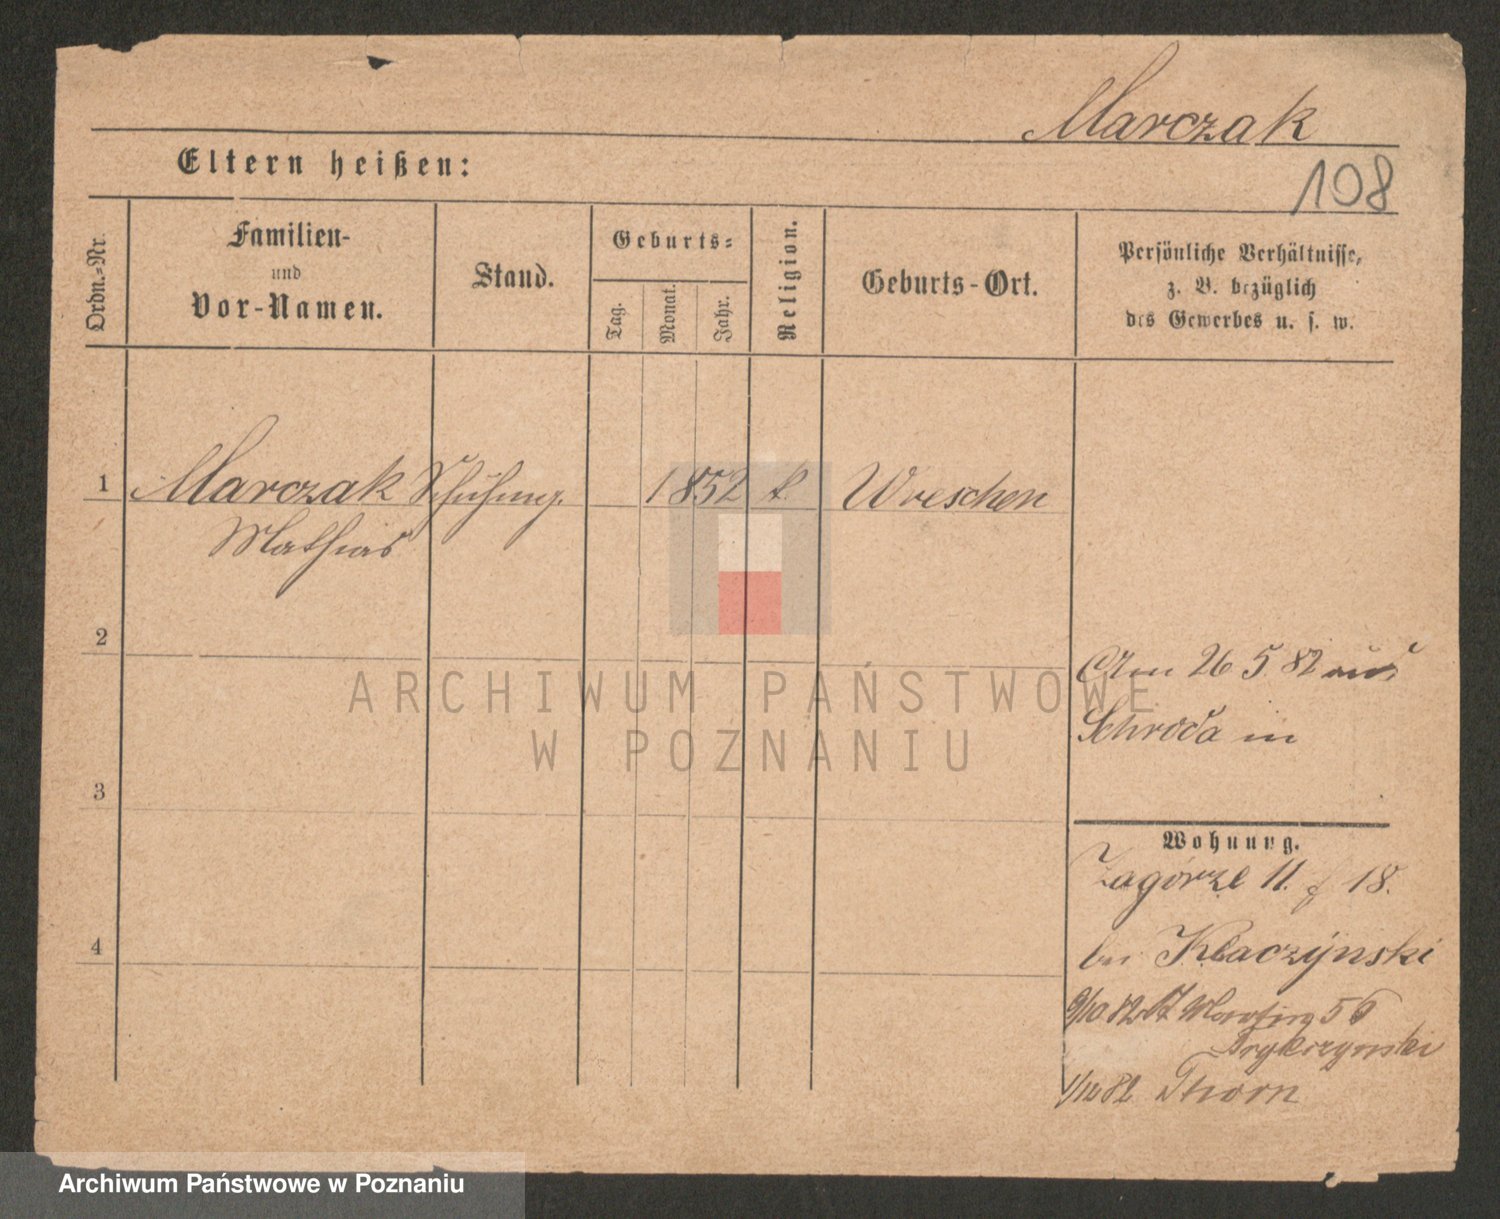 Marczak
Eltern heißen:
108
Ordn.-Nr.
Familien-
und
Vor-Namen.
Stand.
Geburts-
Tag.
Monat.
Jahr.
Religion.
Geburts-Ort.
Persönliche Verhältnisse,
z. B. bezüglich
des Gewerbes u. s. w.
1 Marczak 1852 k. Wreschen
Mathias
2
Am 26 5. 82 aus
Schroda in
3
Wohnung.
Zagórze 11. 18.
bei Klaczynski
4
9/10 82 56
1/12 82 Thorn
ARCHIWUM PAŃSTWOWE
W POZNANIU
Archiwum Państwowe w Poznaniu